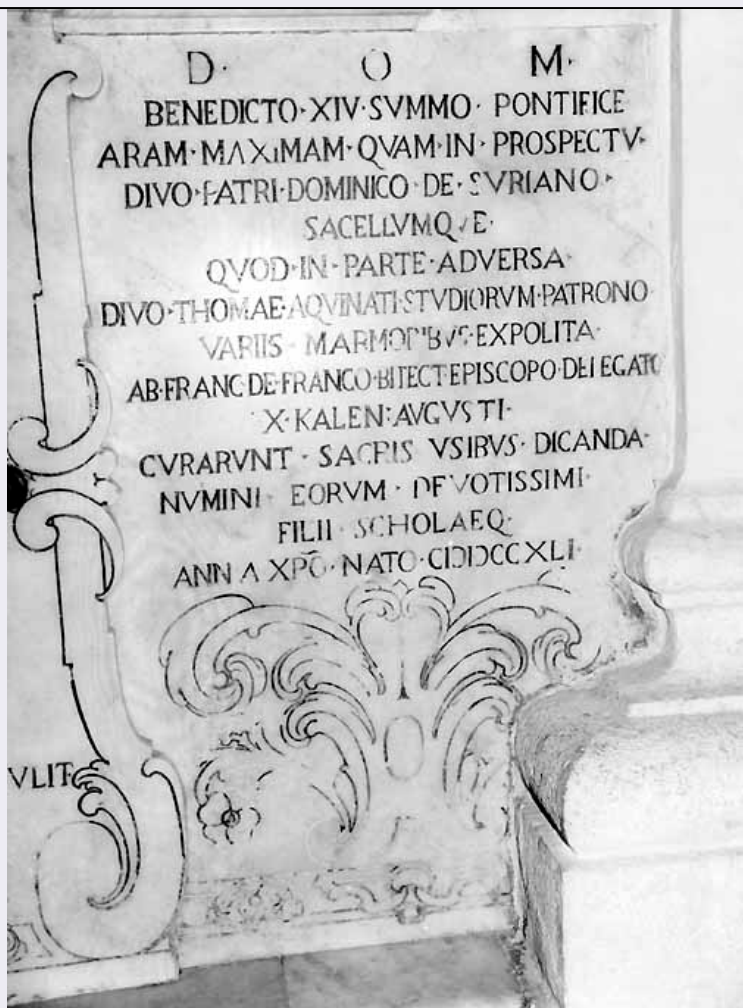 D· O M·
BENEDICTO·XIV·SVMMO·PONTIFICE
ARAM·MAXIMAM·QVAM·IN·PROSPECTV·
DIVO·PATRI·DOMINICO·DE·SVRIANO·
SACELLVMQVE·
QVOD·IN·PARTE·ADVERSA·
DIVO·THOMAE·AQVINATI·STVDIORVM·PATRONO
VARIIS·MARMORIBVS·EXPOLITA·
AB·FRANC·DE·FRANCO·BITECT·EPISCOPO·DELEGATO
X·KALEN:AVGVSTI·
CVRARVNT·SACRIS VSIBVS·DICANDA·
NVMINI·EORVM·DEVOTISSIMI·
FILII·SCHOLAEQ·
ANN A XPŌ·NATO·CIƆIƆCCXLI·
VLIT·